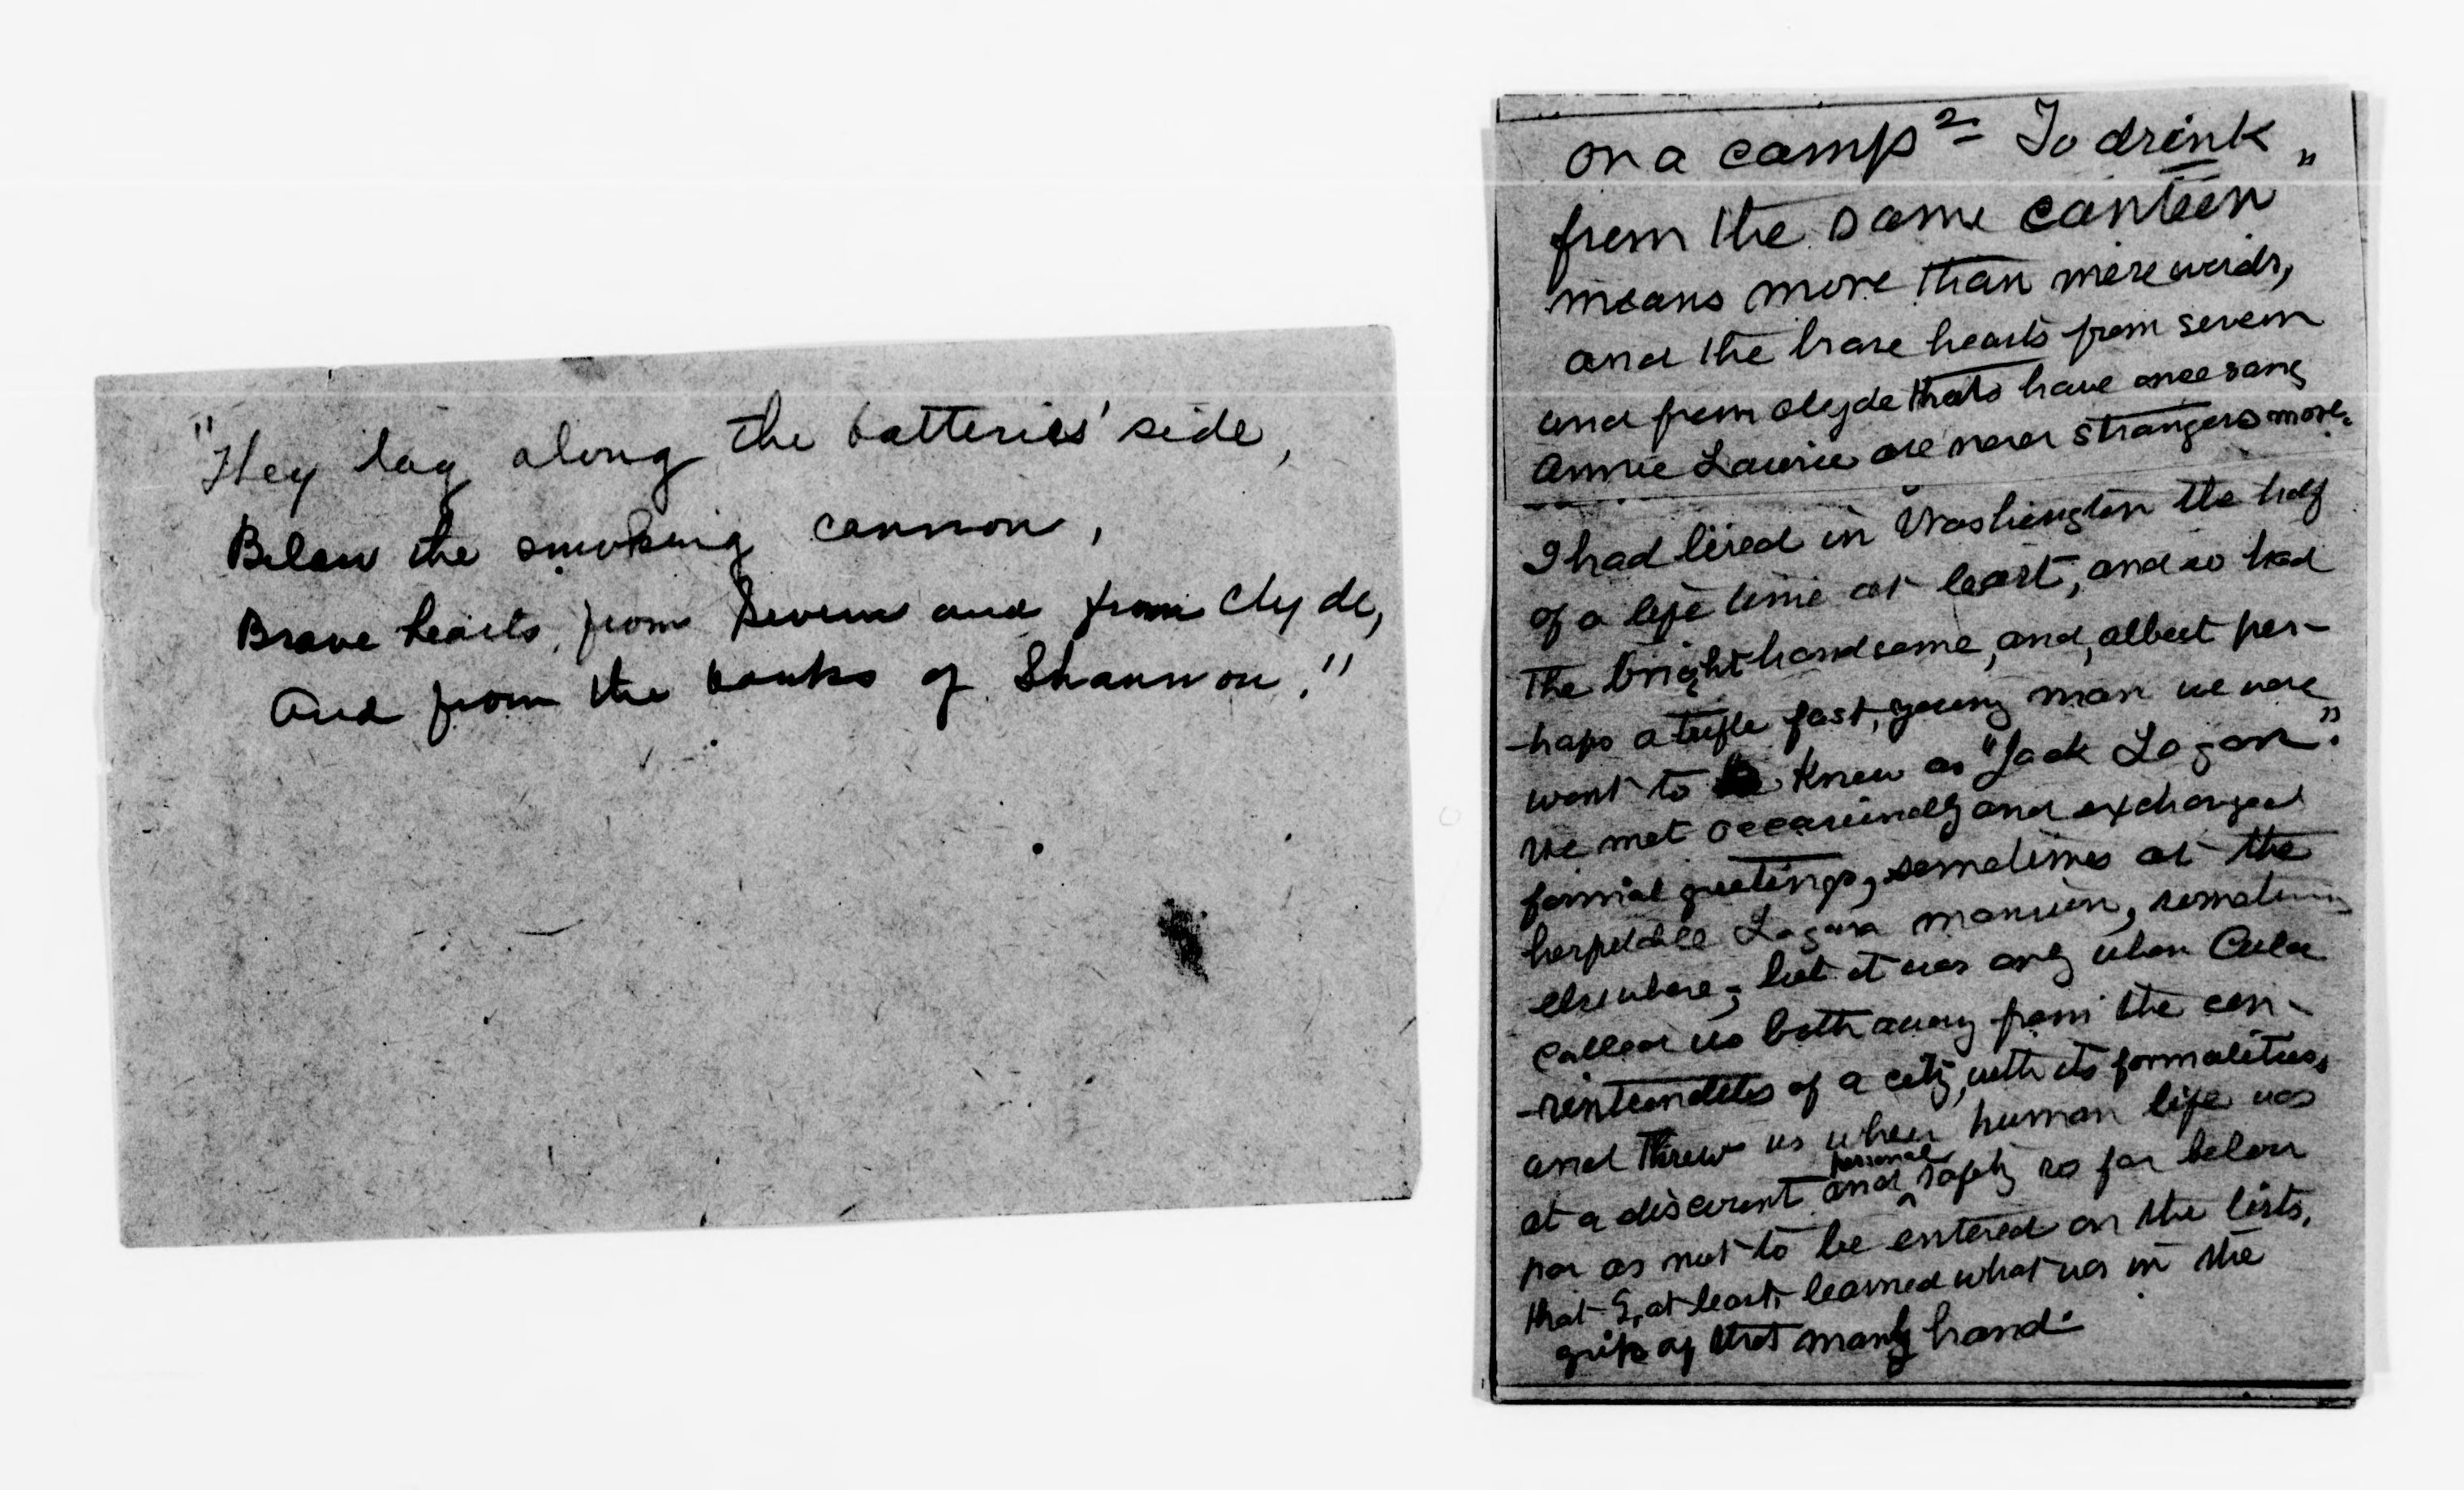 "They lay along the batteries' side,
Below the smoking cannon,
Brave hearts, from Severn and from Clyde,
And from the banks of Shannon."
on a camp 2= To drink
from the same canteen"
means more than mere words,
and the brave hearts from severn
and from clyde thats have once sang
Annie Laurie are never strangers more.
I had lived in Washington the half
of a life time at least, and so had
the bright handsome, and, albeit per-
-haps a trifle fast, young man we were
wont to know as "Jack Logan".
We met occasionally and exchanged
formal greetings, sometimes at the
hospitable Logan mansion, sometimes
elsewhere, but it was only when Cuba
called us both away from the con-
of a city, with its formalities,
and threw us when human life was
at a discount and personal safety so far below
par as not to be entered on the lists,
that I, at least, learned what was in the
grip of that manly hand.